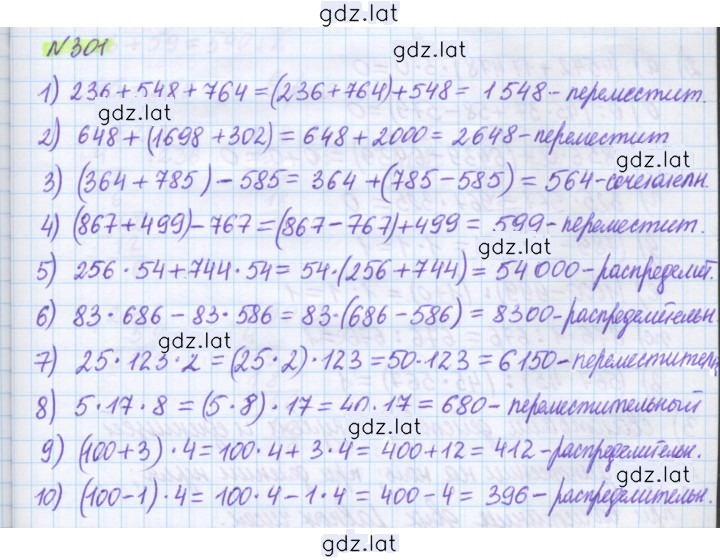 gdz.lat
№301
gdz.lat
1) 236+548+764=(236+764)+548= 1548-переместит.
gdz.lat
2) 648+(1698+302)=648+2000=2648-переместит
gdz.lat
3) (364+785)-585=364+(785-585)=564-сочетательн.
4) (867+499)-767=(867-767)+499=599-переместит.
gdz.lat
5) 256·54+744·54=54·(256+744)=54000-распределит.
6) 83·686-83·586=83·(686-586)=8300-распределительн
gdz.lat
7) 25·123·2=(25·2)·123=50·123=6150-переместительн
8) 5·17·8=(5·8)·17=40·17=680-переместительный
gdz.lat
9) (100+3)·4=100·4+3·4=400+12=412-распределительн.
gdz.lat
10) (100-1)·4=100·4-1·4=400-4=396-распределительн.
gdz.lat